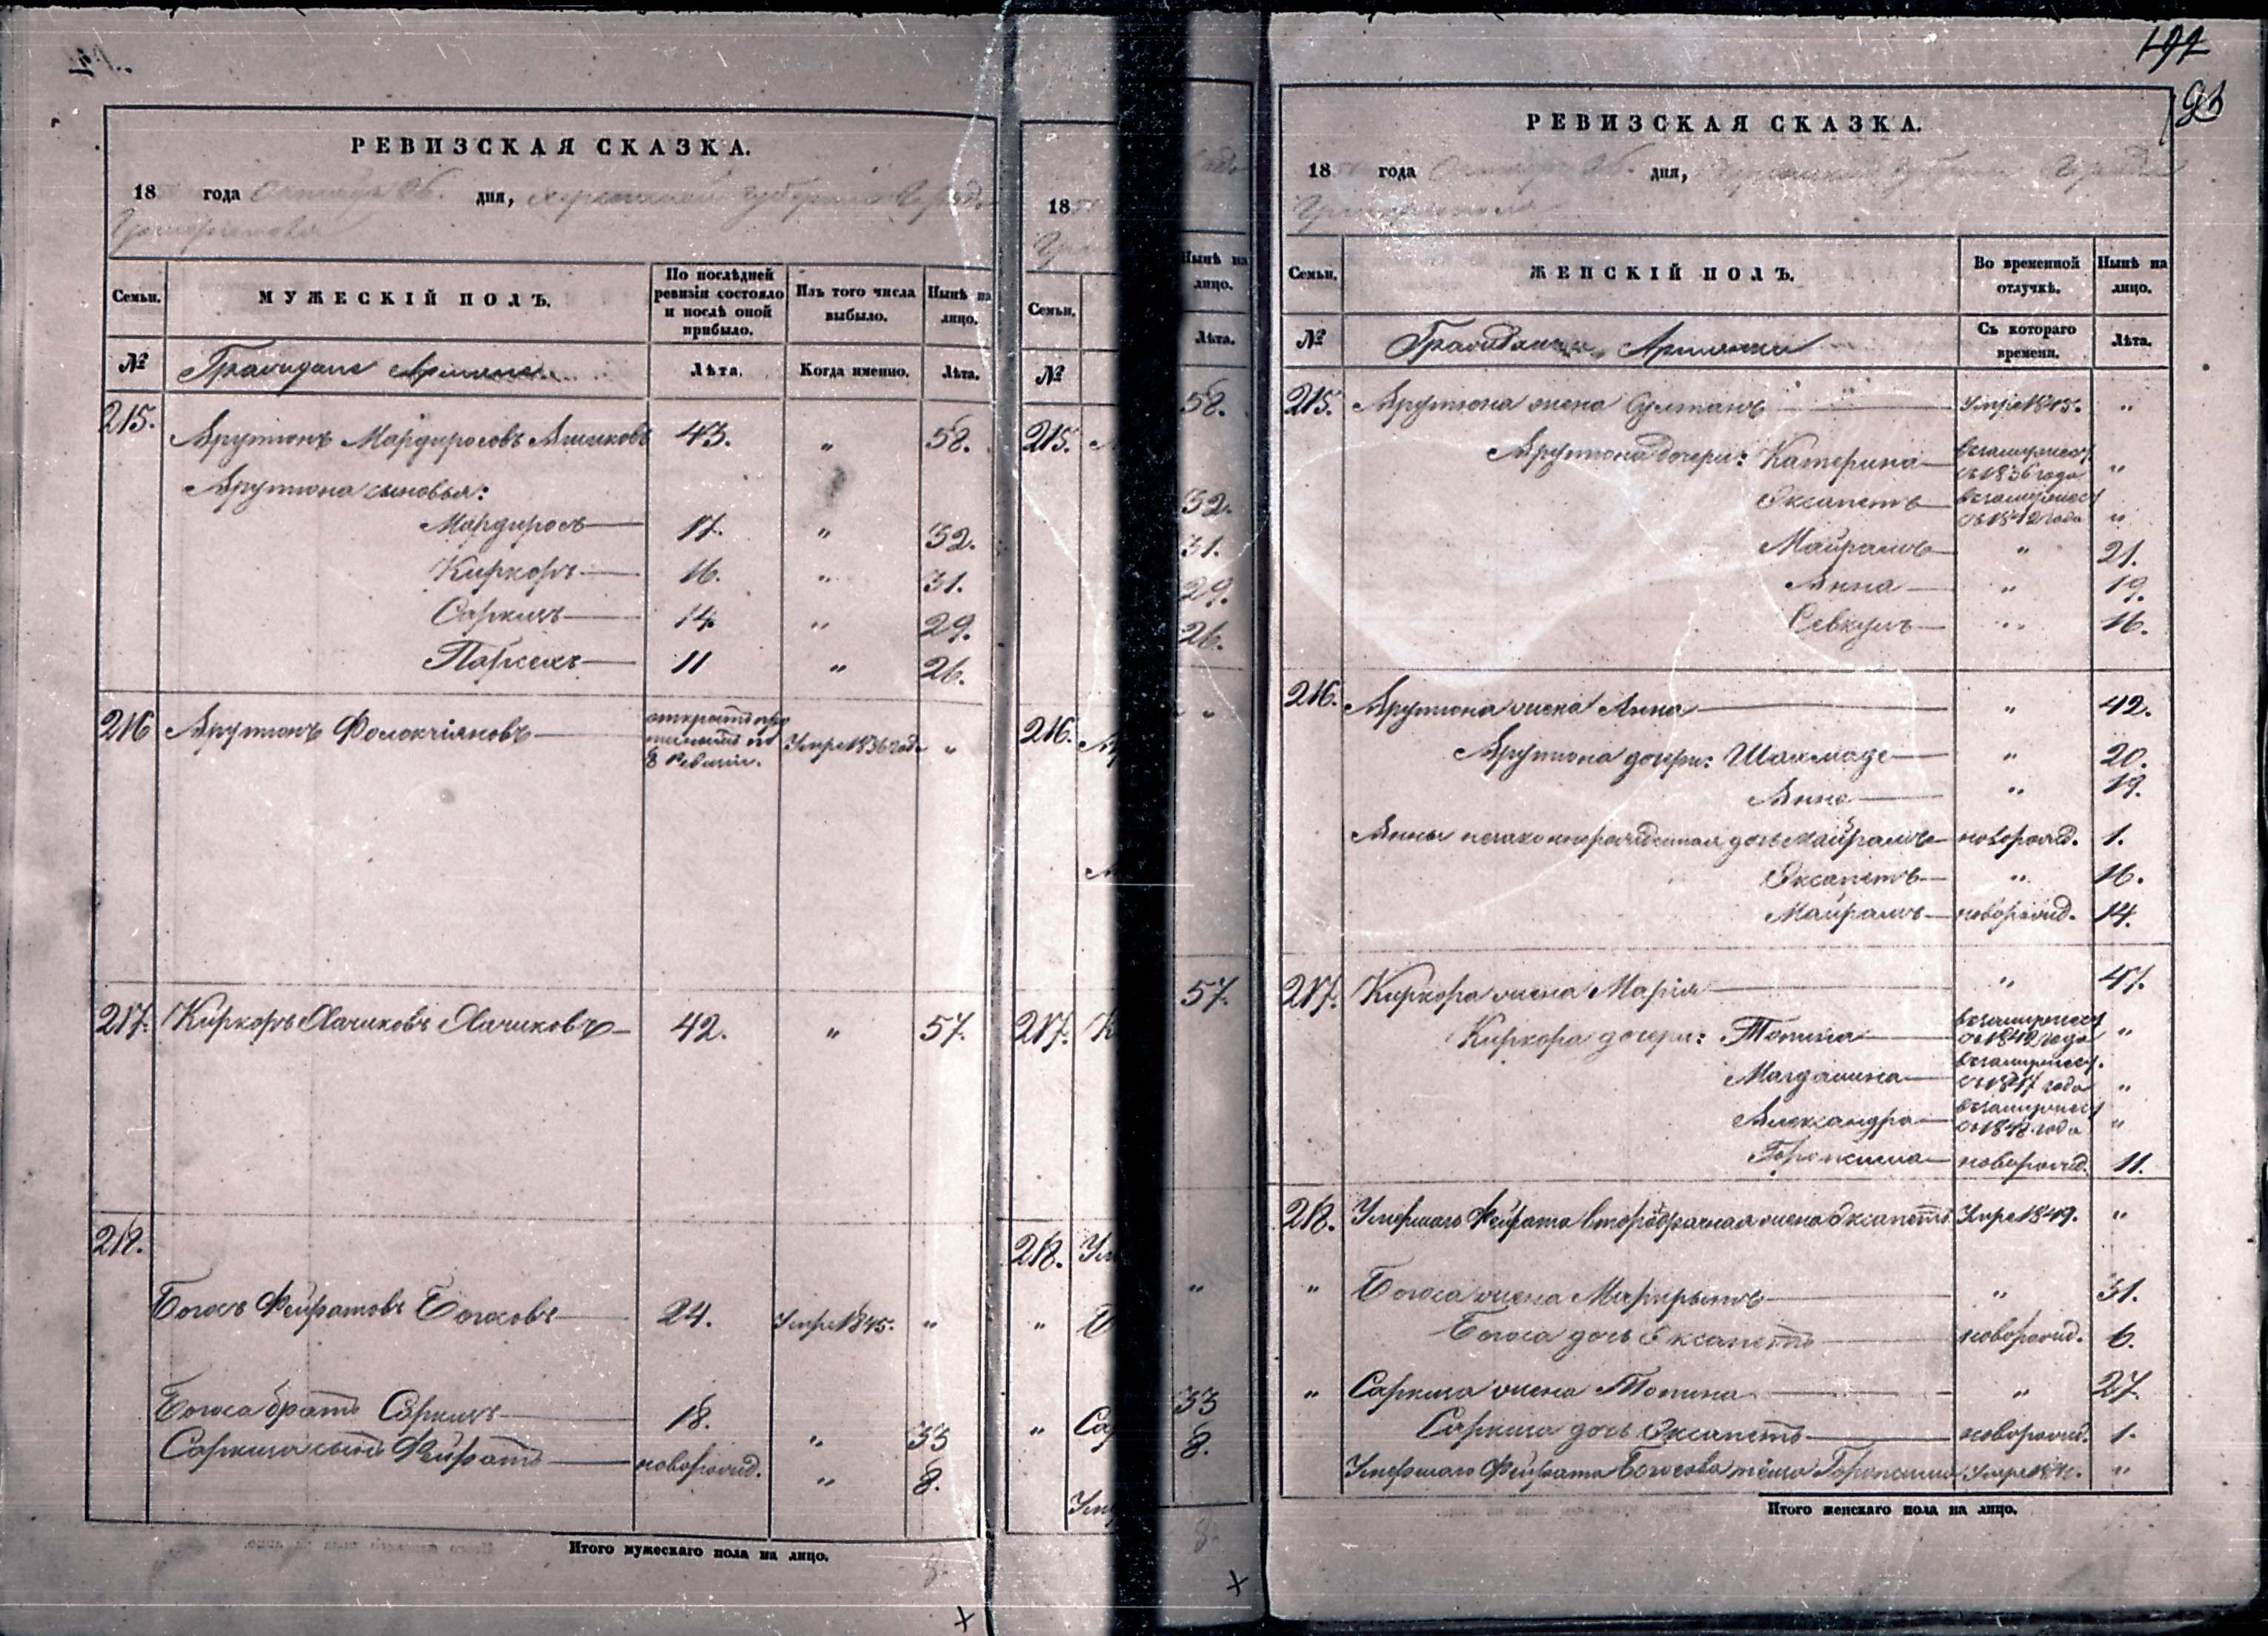 РЕВИЗСКАЯ СКАЗКА.
18 года Октября 26. дня, Херсонской губернии Города
Григориополя
Семьи. МУЖЕСКІЙ ПОЛЪ. По послѣдней ревизіи состояло и послѣ оной прибыло. Изъ того числа выбыло. Нынѣ на лицо.
№ Граждане Армяне Лѣта. Когда именно. Лѣта.
215. Арутюнъ Мардиросовъ 43. " 58.
Арутюна сыновья:
Мардиросъ 17. " 32.
Киркоръ 16. " 31.
Саркисъ 14. " 29.
Парсехъ 11 " 26.
216 Арутюнъ по 8 Ревизіи. Умре 1836 года "
217. Киркоръ Хачиковъ Хачиковъ 42. " 57.
218.
Богосъ Фейратовъ Богосовъ 24. Умре 1845. "
Богоса братъ Саркисъ 18. " 33
Саркиса сынъ Фейратъ новорожд. " 8.
Итого мужескаго пола на лицо.
8.
х
1850
Семьи.
№
215.
216.
217. К
218. Ум
" Б
" Сар
Ум
Нынѣ на лицо.
Лѣта.
58.
32.
31.
29.
26.
"
57.
"
33
8.
8.
х
192
93
РЕВИЗСКАЯ СКАЗКА.
1850 года Октября 26. дня, Херсонской губерніи Города
Григориополя
Семьи. ЖЕНСКІЙ ПОЛЪ. Во временной отлучкѣ. Нынѣ на лицо.
№ Гражданки Армянки Съ котораго времени. Лѣта.
215. Арутюна жена Султанъ Умре 1845. "
Арутюна дочери: Катерина въ замужест. съ 1836 года "
Эксапетъ въ замужест. съ 1842 года "
Майрамъ " 21.
Анна " 19.
Севкулъ " 16.
216. Арутюна жена Анна " 42.
Арутюна дочери: " 20.
Анна " 19.
Анны незаконнорожденная дочь Майрамъ новорожд. 1.
Эксапетъ " 16.
Майрамъ новорожд. 14.
217. Киркора жена Марія " 47.
Киркора дочери: въ замужест. съ 1842 года "
Магдалина въ замужест. съ 1847 года "
Александра въ замужест. съ 1848 года "
новорожд. 11.
218. Умершаго Фейрата второбрачная жена Эксапетъ Умре 1849. "
" Богоса жена " 31.
Богоса дочь Эксапетъ новорожд. 6.
" Саркиса жена " 27.
Саркиса дочь Эксапетъ новорожд. 1.
Умершаго Фейрата Богосова "
Итого женскаго пола на лицо.